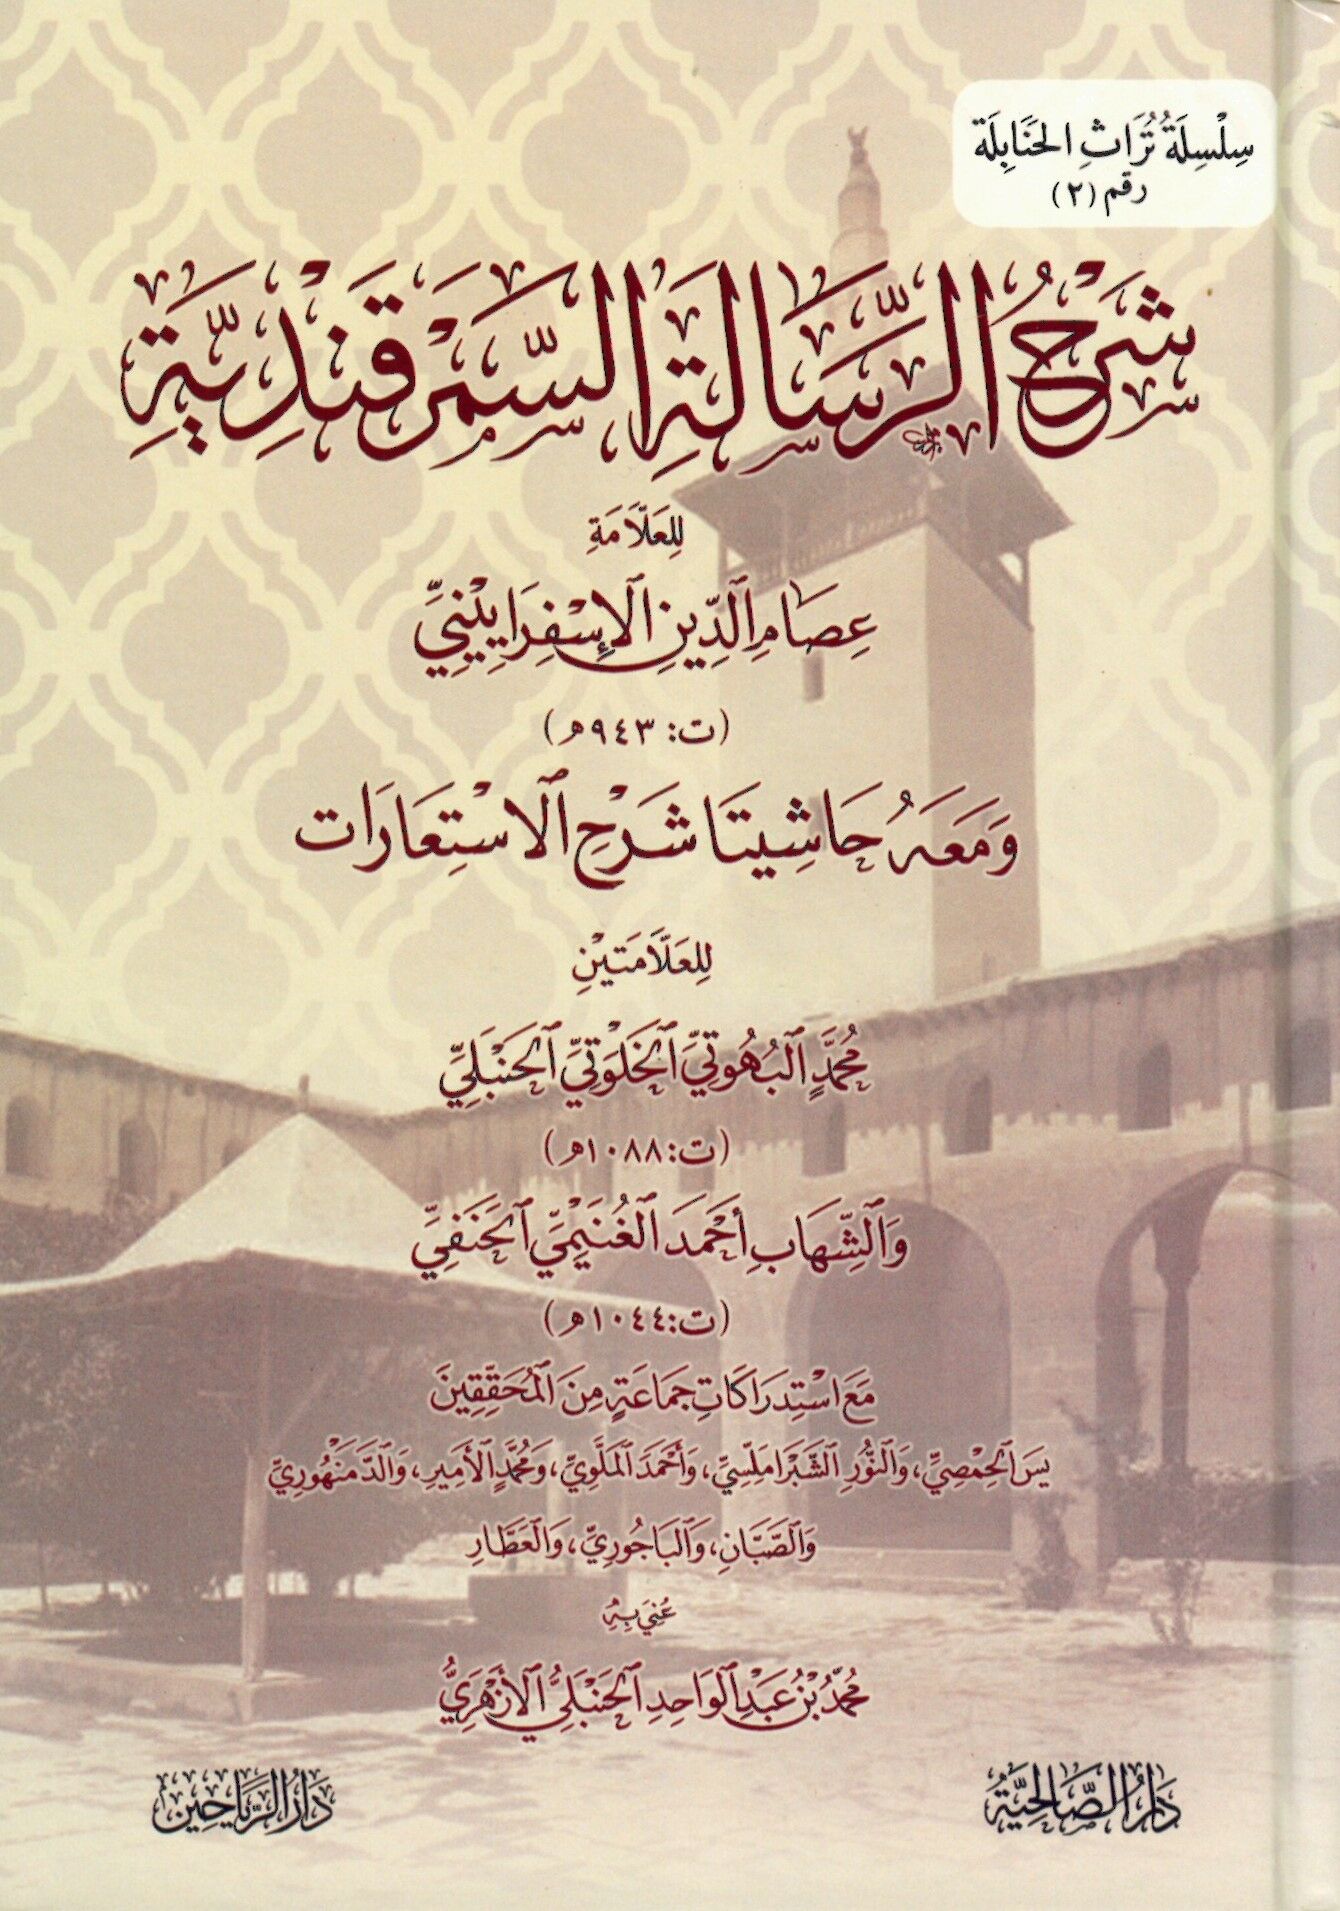 سِلْسِلَةُ تُرَاثِ الحَنَابِلَة
رقم (٢)
شَرْحُ الرِّسَالَةِ السَّمَرقَنْدِيَّةِ
لِلعَلَّامَةِ
عِصَامِ الدِّينِ الإِسْفِرَايِينِيِّ
(ت: ٩٤٣هـ)
وَمَعَهُ حَاشِيتَا شَرْحِ الاسْتِعَارَات
لِلعَلَّامَتَيْنِ
مُحَمَّدٍ البُهُوتِيِّ الخَلْوَتِيِّ الحَنْبَلِيِّ
(ت: ١٠٨٨هـ)
وَالشِّهَابِ أَحْمَدَ الغُنَيْمِيِّ الحَنَفِيِّ
(ت: ١٠٤٤هـ)
مَعَ اسْتِدرَاكَاتِ جَمَاعَةٍ مِنَ المُحَقِّقِينَ
يس الحِمْصِيِّ، وَالنُّورِ الشَّبْرَامَلِّسِيِّ، وَأَحْمَدَ المَلَّوِيِّ، وَمُحَمَّدٍ الأَمِيرِ، وَالدَّمَنْهُورِيِّ
وَالصَّبَّانِ، وَالبَاجُورِيِّ، وَالعَطَّارِ
عُنِيَ بِهِ
مُحَمَّدُ بْنُ عَبْدِ الوَاحِدِ الحَنْبَلِيُّ الأَزْهَرِيُّ
دَارُ الصَّالِحِيَّة
دَارُ الرَّيَاحِين